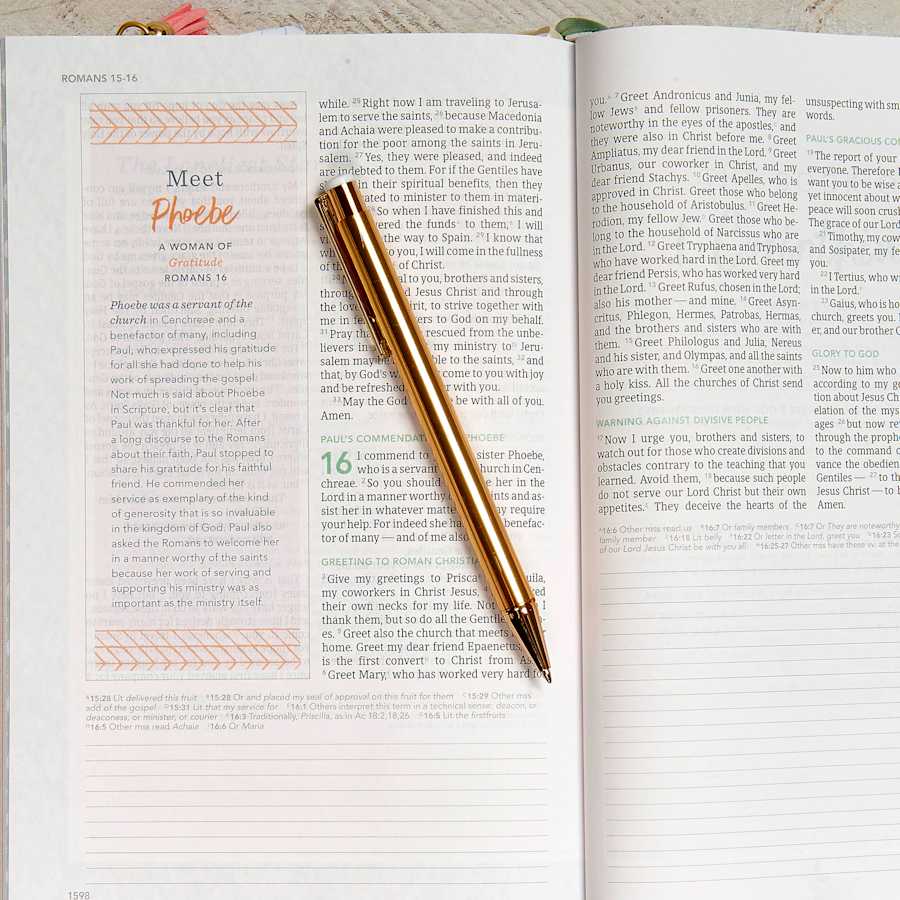 ROMANS 15-16
Meet
Phoebe
A WOMAN OF
Gratitude
ROMANS 16
Phoebe was a servant of the
church in Cenchreae and a
benefactor of many, including
Paul, who expressed his gratitude
for all she had done to help his
work of spreading the gospel.
Not much is said about Phoebe
in Scripture, but it's clear that
Paul was thankful for her. After
a long discourse to the Romans
about their faith, Paul stopped to
share his gratitude for his faithful
friend. He commended her
service as exemplary of the kind
of generosity that is so invaluable
in the kingdom of God. Paul also
asked the Romans to welcome her
in a manner worthy of the saints
because her work of serving and
supporting his ministry was as
important as the ministry itself.
while. 25 Right now I am traveling to Jerusa-
lem to serve the saints, 26 because Macedonia
and Achaia were pleased to make a contribu-
tion for the poor among the saints in Jeru-
salem. 27 Yes, they were pleased, and indeed
are indebted to them. For if the Gentiles have
in their spiritual benefits, then they
to minister to them in materi-
28 So when I have finished this and
the funds to them, I will
the way to Spain. 29 I know that
to you, I will come in the fullness
of Christ.
to you, brothers and sisters,
through Jesus Christ and through
the love Spirit, to strive together with
me in to God on my behalf.
31 Pray rescued from the unbe-
lievers in my ministry to Jeru-
salem may be to the saints, 32 and
that, by God's come to you with joy
and be refreshed with you.
33 May the God be with all of you.
Amen.
PAUL'S PHOEBE
16 I commend to sister Phoebe,
who is a servant church in Cen-
chreae. 2 So you should her in the
Lord in a manner worthy saints and as-
sist her in whatever may require
your help. For indeed she benefac-
tor of many — and of me
GREETING TO ROMAN
3 Give my greetings to Prisca
my coworkers in Christ Jesus,
their own necks for my life. Not I
thank them, but so do all the
es. 5 Greet also the church that meets
home. Greet my dear friend Epaenetus,
is the first convert to Christ from
6 Greet Mary, who has worked very hard
15:28 Lit delivered this fruit 15:28 Or and placed my seal of approval on this fruit for them 15:29 Other mss
add of the gospel 15:31 Lit that my service for 16:1 Others interpret this term in a technical sense: deacon, or
deaconess, or minister, or courier 16:3 Traditionally, Priscilla, as in Ac 18:2,18,26 16:5 Lit the firstfruits
16:5 Other mss read Achaia 16:6 Or Maria
1598
you. 7 Greet Andronicus and Junia, my fel-
low Jews and fellow prisoners. They are
noteworthy in the eyes of the apostles, and
they were also in Christ before me. 8 Greet
Ampliatus, my dear friend in the Lord. 9 Greet
Urbanus, our coworker in Christ, and my
dear friend Stachys. 10 Greet Apelles, who is
approved in Christ. Greet those who belong
to the household of Aristobulus. 11 Greet He-
rodion, my fellow Jew. Greet those who be-
long to the household of Narcissus who are
in the Lord. 12 Greet Tryphaena and Tryphosa,
who have worked hard in the Lord. Greet my
dear friend Persis, who has worked very hard
in the Lord. 13 Greet Rufus, chosen in the Lord;
also his mother — and mine. 14 Greet Asyn-
critus, Phlegon, Hermes, Patrobas, Hermas,
and the brothers and sisters who are with
them. 15 Greet Philologus and Julia, Nereus
and his sister, and Olympas, and all the saints
who are with them. 16 Greet one another with
a holy kiss. All the churches of Christ send
you greetings.
WARNING AGAINST DIVISIVE PEOPLE
17 Now I urge you, brothers and sisters, to
watch out for those who create divisions and
obstacles contrary to the teaching that you
learned. Avoid them, 18 because such people
do not serve our Lord Christ but their own
appetites. They deceive the hearts of the
unsuspecting with
words.
PAUL'S GRACIOUS
19 The report of your
everyone. Therefore I
want you to be wise
yet innocent about
peace will soon
The grace of our Lord
21 Timothy, my
and Sosipater, my
you.
22 I Tertius, who
in the Lord.
23 Gaius, who is
church, greets you.
er, and our brother
GLORY TO GOD
25 Now to him who
according to my
tion about Jesus
elation of the
ages 26 but now
through the
to the command
vance the
Gentiles — 27 to
Jesus Christ — to
Amen.
16:6 Other mss read us 16:7 Or family members 16:7 Or They are noteworthy
family member 16:18 Lit belly 16:22 Or letter in the Lord, greet you 16:23
of our Lord Jesus Christ be with you all. 16:25-27 Other mss have these vv. at the